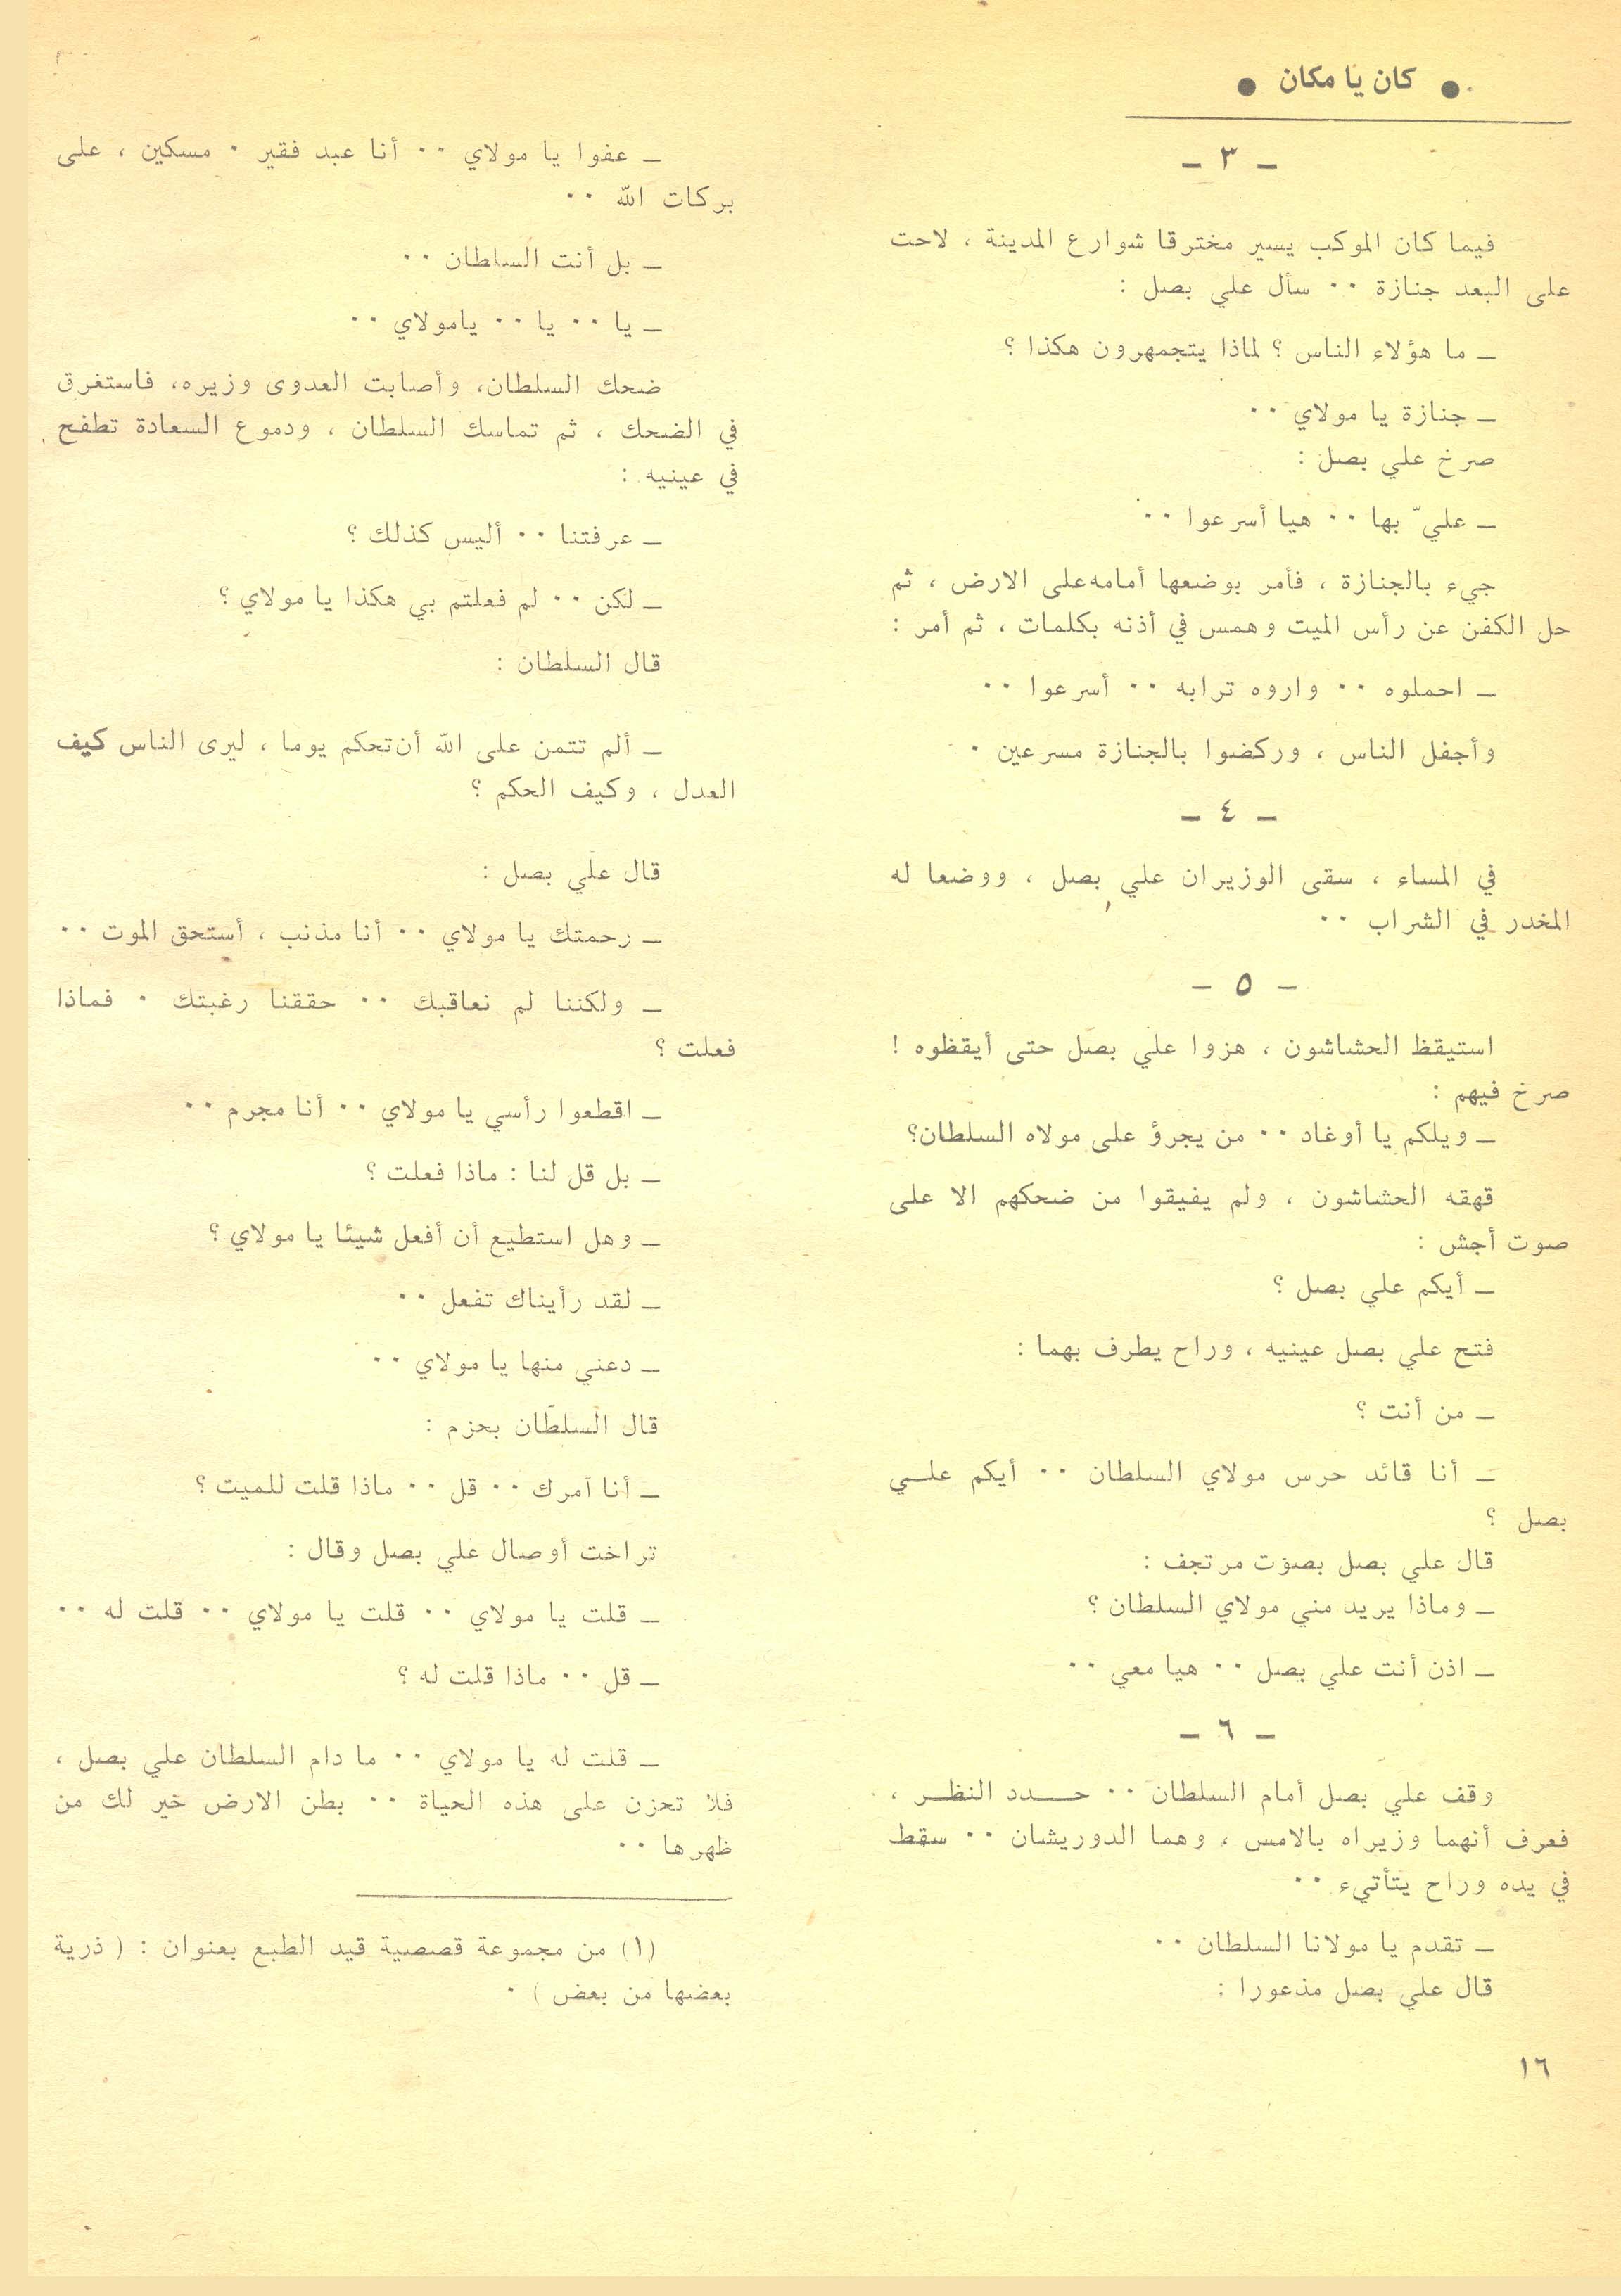 ● كان يا مكان ●
— ٣ —
فيما كان الموكب يسير مخترقا شوارع المدينة ، لاحت
على البعد جنازة ٠٠ سأل علي بصل :
— ما هؤلاء الناس ؟ لماذا يتجمهرون هكذا ؟
— جنازة يا مولاي ٠٠
صرخ علي بصل :
— عليّ بها ٠٠ هيا أسرعوا ٠٠
جيء بالجنازة ، فأمر بوضعها أمامه على الارض ، ثم
حل الكفن عن رأس الميت وهمس في أذنه بكلمات ، ثم أمر :
— احملوه ٠٠ واروه ترابه ٠٠ أسرعوا ٠٠
وأجفل الناس ، وركضوا بالجنازة مسرعين ٠
— ٤ —
في المساء ، سقى الوزيران علي بصل ، ووضعا له
المخدر في الشراب ٠٠
— ٥ —
استيقظ الحشاشون ، هزوا علي بصل حتى أيقظوه !
صرخ فيهم :
— ويلكم يا أوغاد ٠٠ من يجرؤ على مولاه السلطان؟
قهقه الحشاشون ، ولم يفيقوا من ضحكهم الا على
صوت أجش :
— أيكم علي بصل ؟
فتح علي بصل عينيه ، وراح يطرف بهما :
— من أنت ؟
— أنا قائد حرس مولاي السلطان ٠٠ أيكم علـــي
بصل ؟
قال علي بصل بصوت مرتجف :
— وماذا يريد مني مولاي السلطان ؟
— اذن أنت علي بصل ٠٠ هيا معي ٠٠
— ٦ —
وقف علي بصل أمام السلطان ٠٠ حـــدد النظــر ،
فعرف أنهما وزيراه بالامس ، وهما الدوريشان ٠٠ سقط
في يده وراح يتأتيء ٠٠
— تقدم يا مولانا السلطان ٠٠
قال علي بصل مذعورا :
— عفوا يا مولاي ٠٠ أنا عبد فقير ٠ مسكين ، على
بركات الله ٠٠
— بل أنت السلطان ٠٠
— يا ٠٠ يا ٠٠ يامولاي ٠٠
ضحك السلطان، وأصابت العدوى وزيره، فاستغرق
في الضحك ، ثم تماسك السلطان ، ودموع السعادة تطفح
في عينيه :
— عرفتنا ٠٠ أليس كذلك ؟
— لكن ٠٠ لم فعلتم بي هكذا يا مولاي ؟
قال السلطان :
— ألم تتمن على الله أن تحكم يوما ، ليرى الناس كيف
العدل ، وكيف الحكم ؟
قال علي بصل :
— رحمتك يا مولاي ٠٠ أنا مذنب ، أستحق الموت ٠٠
— ولكننا لم نعاقبك ٠٠ حققنا رغبتك ٠ فماذا
فعلت ؟
— اقطعوا رأسي يا مولاي ٠٠ أنا مجرم ٠٠
— بل قل لنا : ماذا فعلت ؟
— وهل استطيع أن أفعل شيئا يا مولاي ؟
— لقد رأيناك تفعل ٠٠
— دعني منها يا مولاي ٠٠
قال السلطان بحزم :
— أنا آمرك ٠٠ قل ٠٠ ماذا قلت للميت ؟
تراخت أوصال علي بصل وقال :
— قلت يا مولاي ٠٠ قلت يا مولاي ٠٠ قلت له ٠٠
— قل ٠٠ ماذا قلت له ؟
— قلت له يا مولاي ٠٠ ما دام السلطان علي بصل ،
فلا تحزن على هذه الحياة ٠٠ بطن الارض خير لك من
ظهرها ٠٠
(١) من مجموعة قصصية قيد الطبع بعنوان : ( ذرية
بعضها من بعض ) ٠
١٦